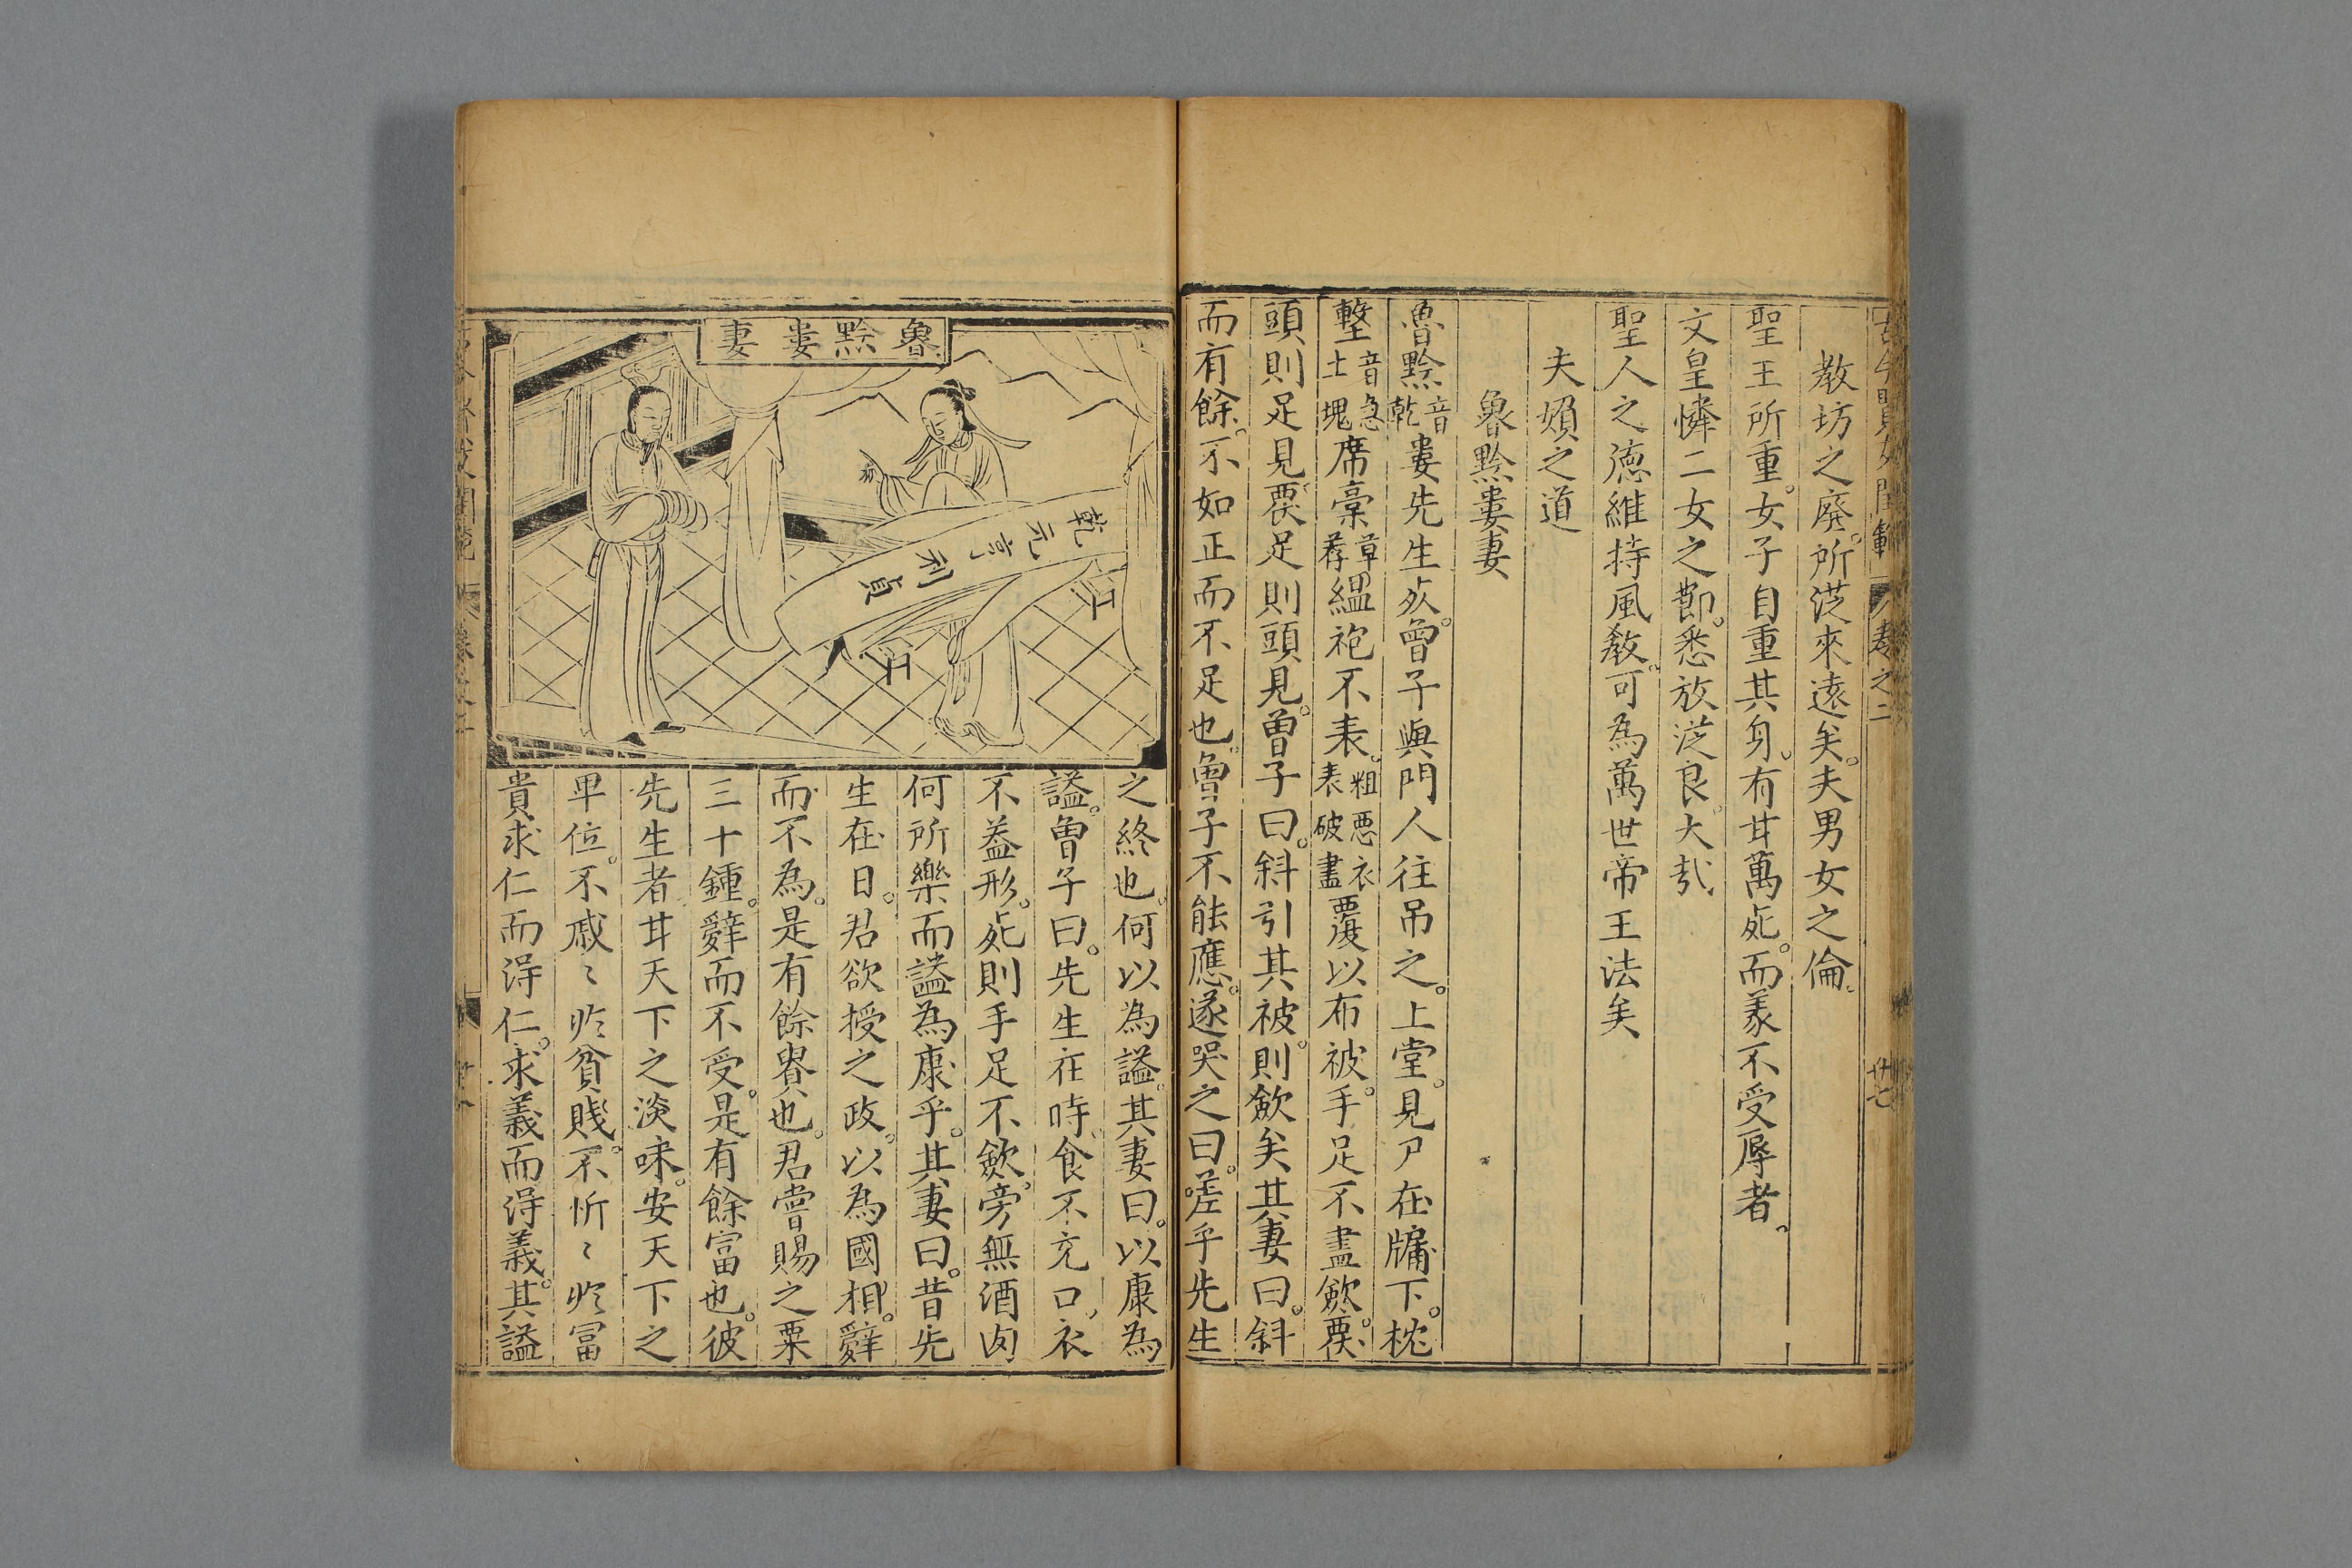 教坊之廢。所從來遠矣。夫男女之倫。
聖王所重。女子自重其身。有甘萬死。而義不受辱者。
文皇憐二女之節。悉放從良。大哉
聖人之德維持風教。可為萬世帝王法矣
夫婦之道
魯黔婁妻
魯黔音乾婁先生死。曾子與門人往吊之。上堂。見尸在牖下。枕
墼音急土塊席稾草荐縕袍不表。粗惡衣表破盡覆以布被。手足不盡歛。覆
頭則足見。覆足則頭見。曾子曰。斜引其被。則歛矣其妻曰。斜
而有餘。不如正而不足也。曾子不能應。遂哭之曰。嗟乎先生
魯黔婁妻
乾元亨利貞
之終也。何以為謚。其妻曰。以康為
謚。曾子曰。先生在時。食不充口。衣
不盖形。死則手足不歛。旁無酒肉
何所樂而謚為康乎。其妻曰。昔先
生在日。君欲授之政。以為國相。辭
而不為。是有餘貴也。君嘗賜之粟
三十鍾。辭而不受。是有餘富也。彼
先生者甘天下之淡味。安天下之
卑位。不戚〻於貧賤。不忻〻於冨
貴求仁而得仁。求義而得義。其謚